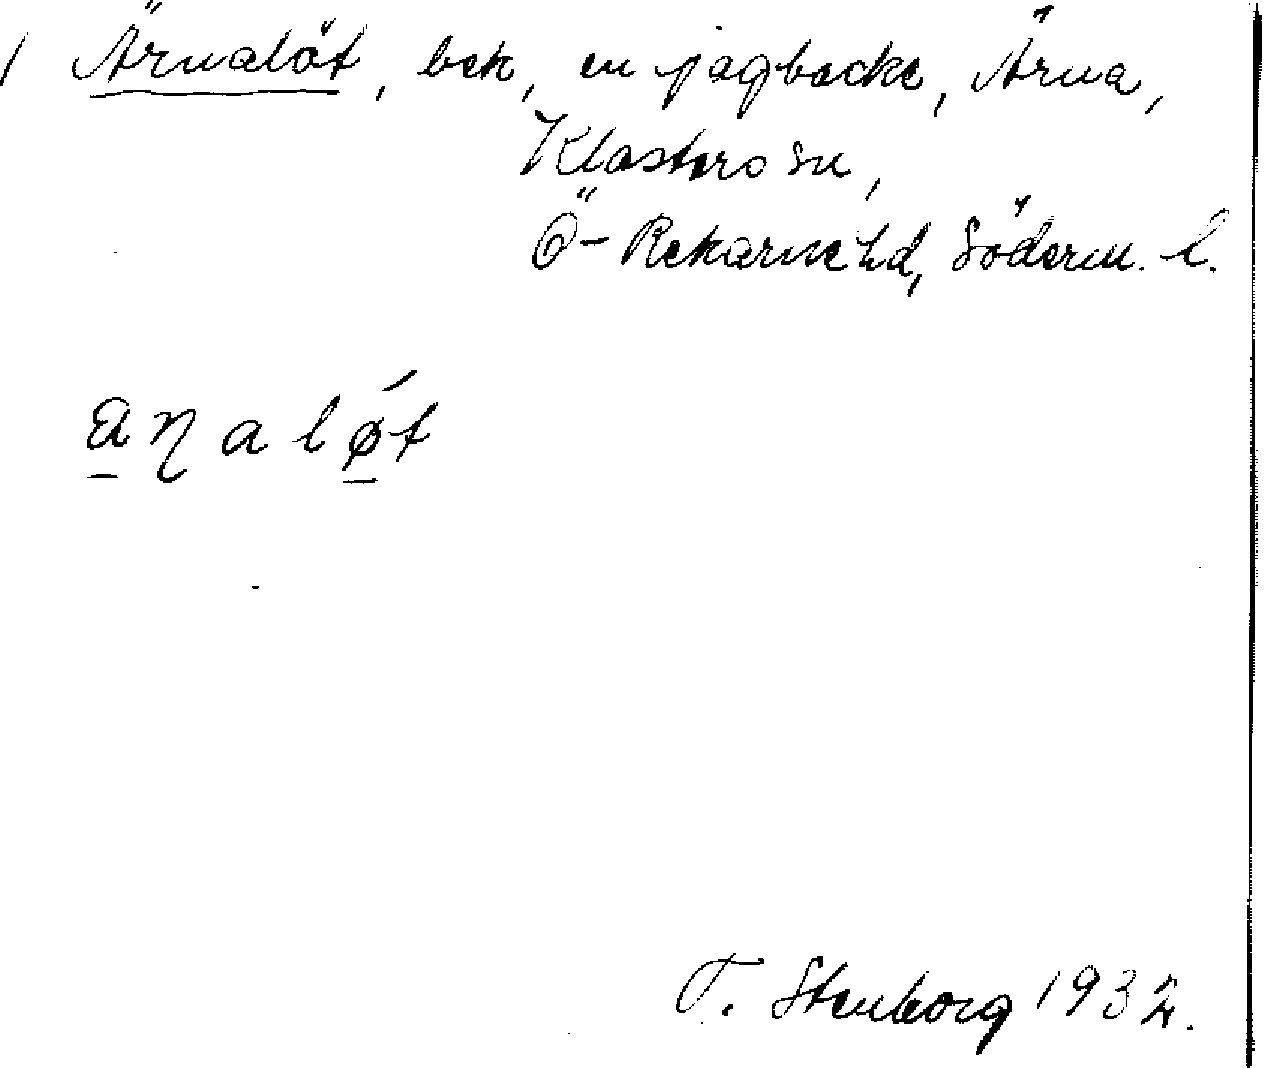 / Ärnalöt, bek, en jagbacke, Ärna,
Klosters sn,
Ö-Rekarne hd, Söderm. l.
a̱ɳalǿ̱t
T. Stenborg 1932.